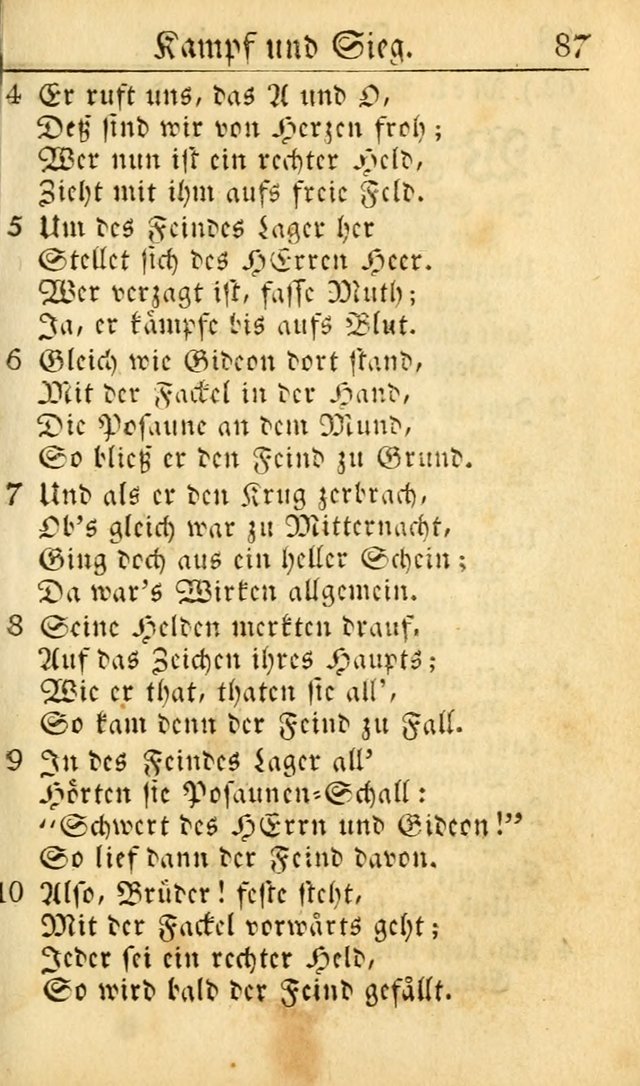 Kampf und Sieg. 87
4 Er ruft uns, das A und O,
Deß sind wir von Herzen froh;
Wer nun ist ein rechter Held,
Zieht mit ihm aufs freie Feld.
5 Um des Feindes Lager her
Stellet sich des HErren Heer.
Wer verzagt ist, fasse Muth;
Ja, er kämpfe bis aufs Blut.
6 Gleich wie Gideon dort stand,
Mit der Fackel in der Hand,
Die Posaune an dem Mund,
So bließ er den Feind zu Grund.
7 Und als er den Krug zerbrach,
Ob's gleich war zu Mitternacht,
Ging doch aus ein heller Schein;
Da war's Wirken allgemein.
8 Seine Helden merkten drauf,
Auf das Zeichen ihres Haupts;
Wie er that, thaten sie all',
So kam denn der Feind zu Fall.
9 In des Feindes Lager all'
Hörten sie Posaunen-Schall:
“Schwert des HErrn und Gideon!”
So lief dann der Feind davon.
10 Also, Brüder! feste steht,
Mit der Fackel vorwärts geht;
Jeder sei ein rechter Held,
So wird bald der Feind gefällt.